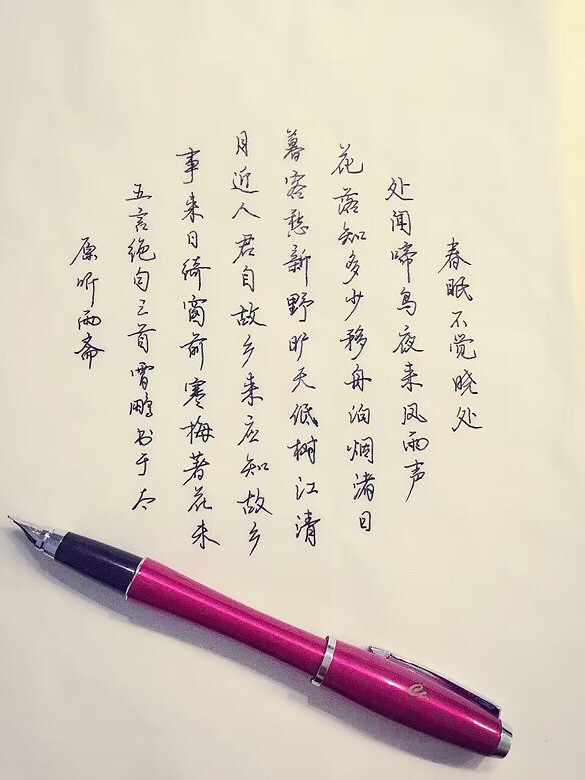 春眠不觉晓处
处闻啼鸟夜来风雨声
花落知多少移舟泊烟渚日
暮客愁新野旷天低树江清
月近人君自故乡来应知故乡
事来日绮窗前寒梅著花未
五言绝句三首雷鹏书于太
原听雨斋